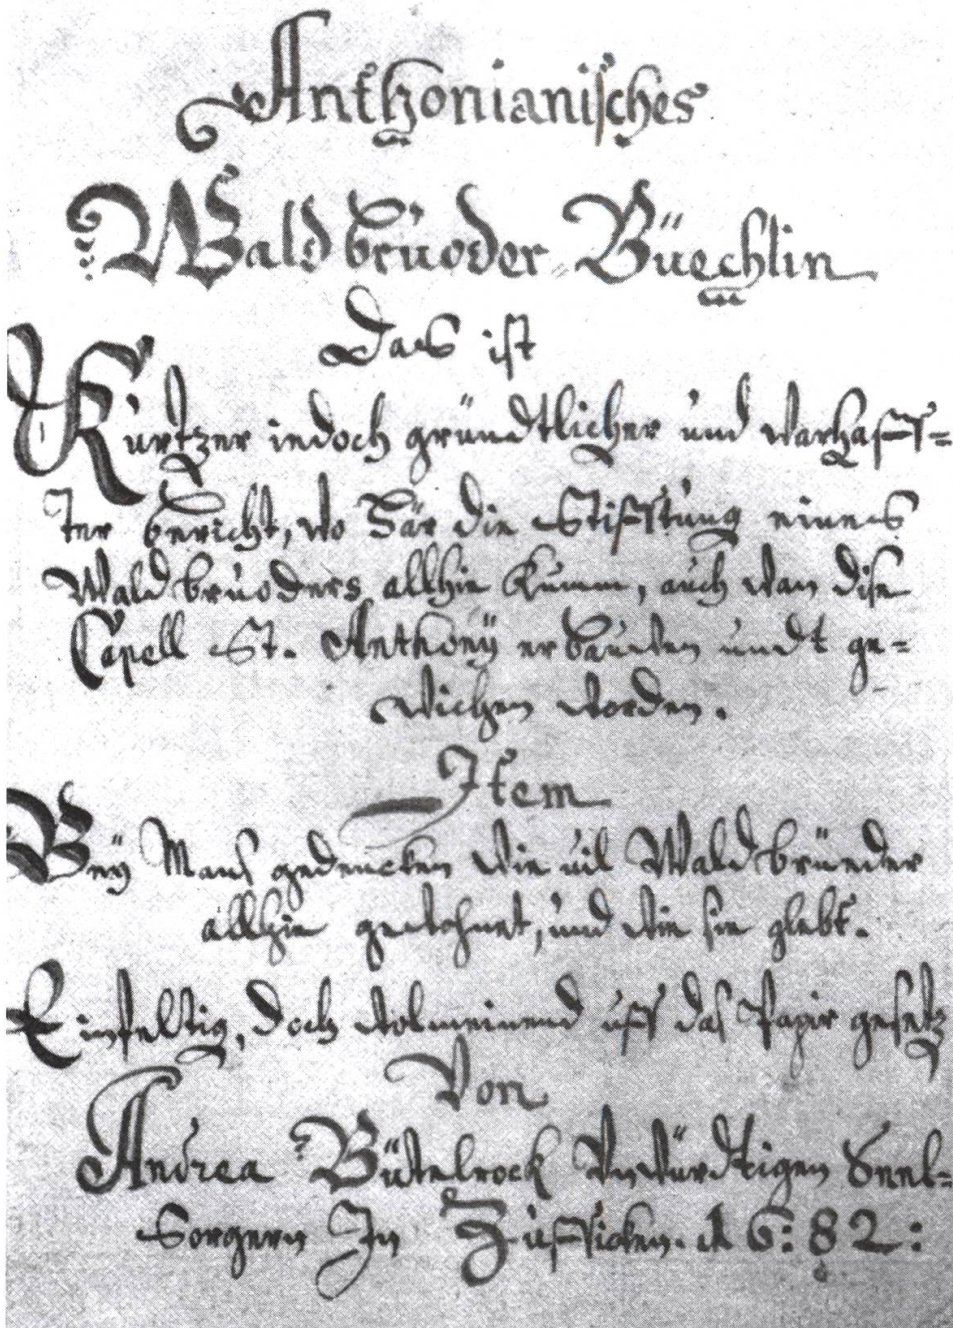 Anthonianisches
Waldbruoder Büechlin
Das ist
Kurtzer iedoch gründtlicher und warhaff=
ter bericht, wo här die Stifftung eines
Waldbruoders allhie kumm, auch wan dise
Capell St. Anthonÿ erbauwen undt ge=
wichen worden.
Item
Beÿ Mans gedencken wie vil Waldbrüeder
allhie gewohnet, und wie sie glebt.
Einfeltig, doch wolmeinend uff das Papir gesetz
Von
Andrea Bütelrock Unwürdtigen Seel=
Sorgern In Zufficken. 1682: